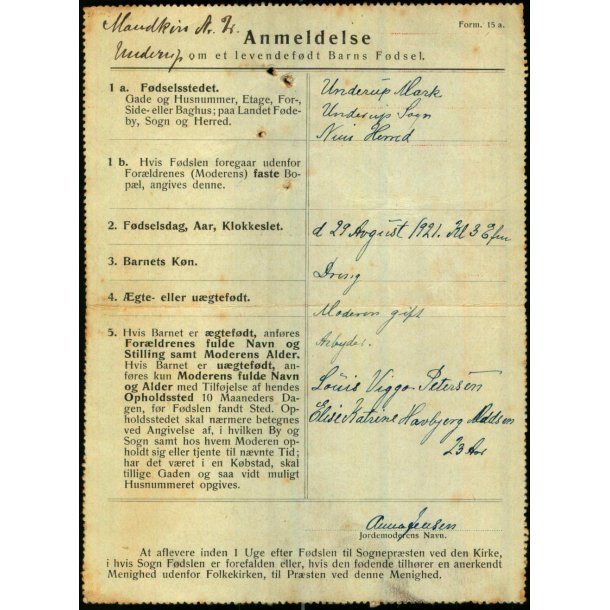 Mandkøn Nr. 12.
Underup
Form. 15 a.
Anmeldelse
om et levendefødt Barns Fødsel.
1 a. Fødselsstedet.
Gade og Husnummer, Etage, For-,
Side- eller Baghus; paa Landet Føde-
by, Sogn og Herred.
Underup Mark
Underup Sogn
Nim Herred
1 b. Hvis Fødslen foregaar udenfor
Forældrenes (Moderens) faste Bo-
pæl, angives denne.
2. Fødselsdag, Aar, Klokkeslet.
d 29 August 1921. Kl 3 Efm
3. Barnets Køn.
Dreng
4. Ægte- eller uægtefødt.
Moderen gift
5. Hvis Barnet er ægtefødt, anføres
Forældrenes fulde Navn og
Stilling samt Moderens Alder.
Hvis Barnet er uægtefødt, an-
føres kun Moderens fulde Navn
og Alder med Tilføjelse af hendes
Opholdssted 10 Maaneders Da-
gen, før Fødslen fandt Sted. Op-
holdsstedet skal nærmere betegnes
ved Angivelse af, i hvilken By og
Sogn samt hos hvem Moderen op-
holdt sig eller tjente til nævnte Tid;
har det været i en Købstad, skal
tillige Gaden og saa vidt muligt
Husnummeret opgives.
Arbejder.
Louis Viggo Petersen
Elise Katrine Havbjerg Madsen
23 Aar
Anna Jensen
Jordemoderens Navn.
At aflevere inden 1 Uge efter Fødslen til Sognepræsten ved den Kirke,
i hvis Sogn Fødslen er forefalden eller, hvis den fødende tilhører en anerkendt
Menighed udenfor Folkekirken, til Præsten ved denne Menighed.